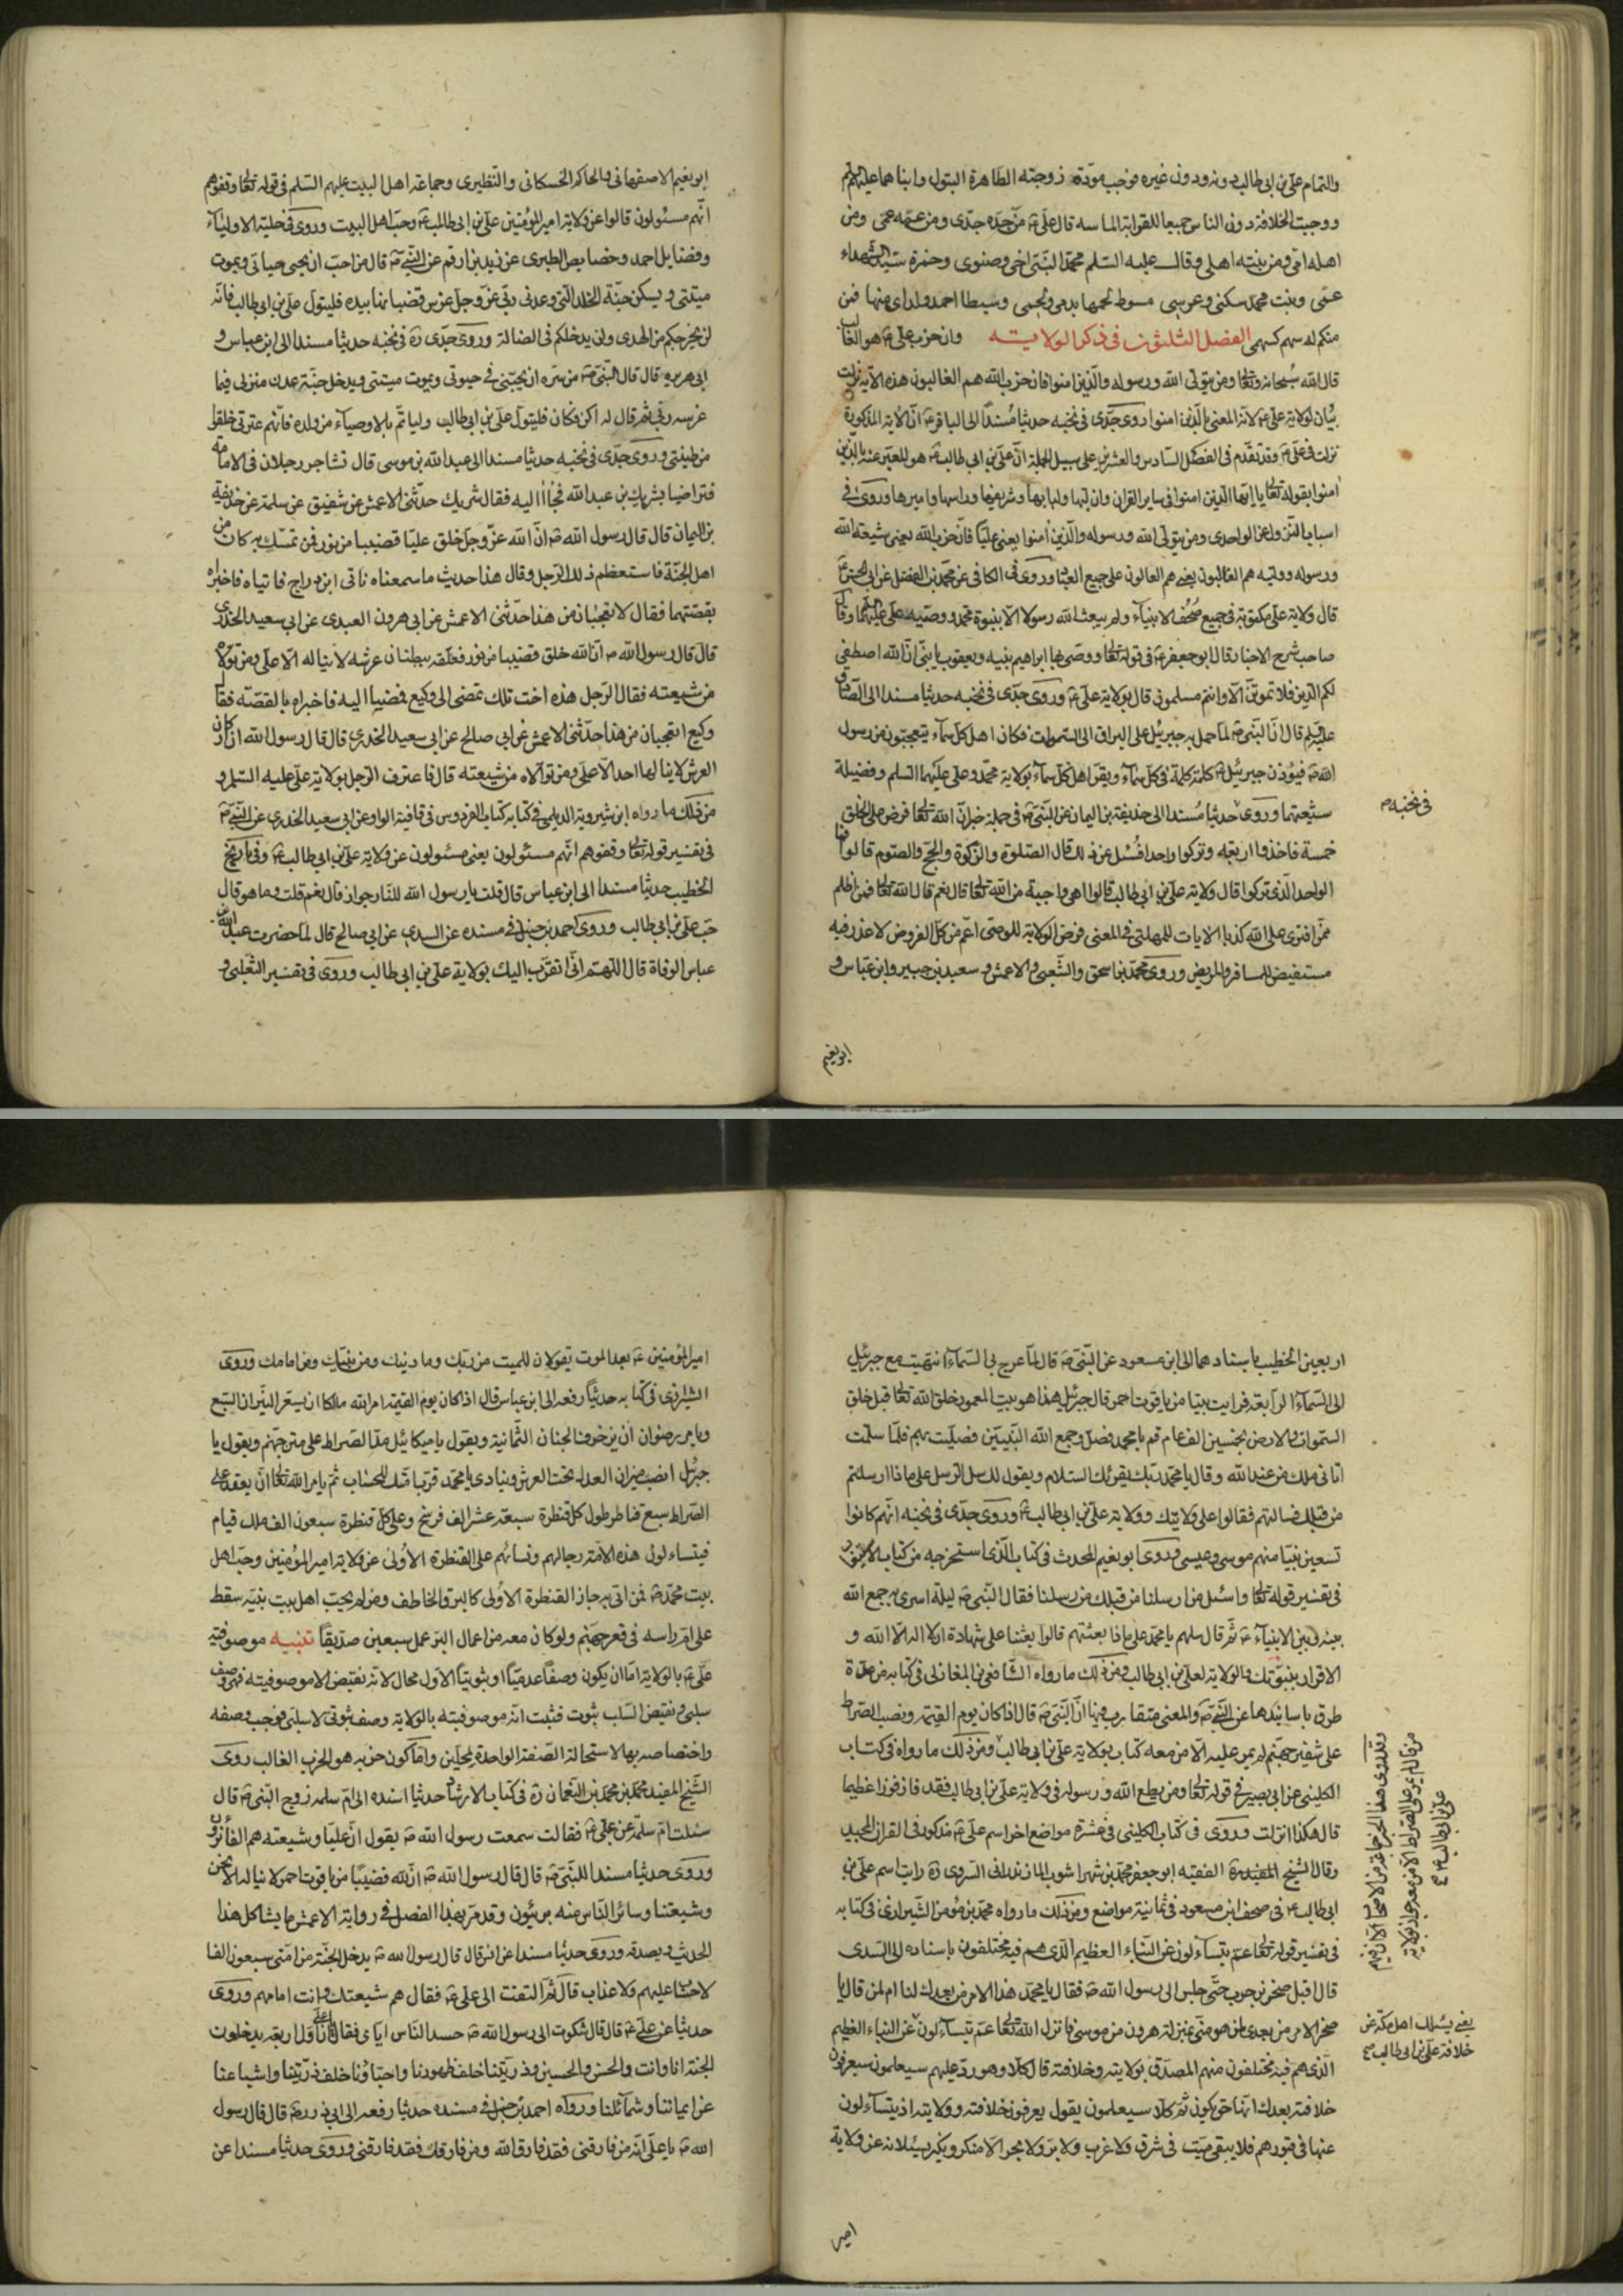 والتمام علي بن ابي طالب دونه ودون غيره فوجب مودة زوجته الطاهرة البتول وابناهما عليهم السلم
ووجبت الخلافة دون الناس جميعا للقرابة الماسه قال علي ع من جده جدي ومن عمه عمي ومن
اهله امي ومن بنته اهلي وقال عليه السلم محمد النبي اخي وصنوي وحمزة سيد الشهداء
عمي وبنت محمد سكني وعرسي مسوط لحمها بدمي ولحمي وسبطا احمد ولداي منها فمن
منكم له سهم كسهمي الفصل الثلثون في ذكر الولاية وان حزب علي ع هو الغالب
قال الله سبحانه وتعالى ومن يتولى الله ورسوله والذين امنوا فان حزب الله هم الغالبون هذه الاية نزلت
بيان لولاية علي ع لانه المعني بالذين امنوا روى جدي في نخبه حديثا مسندا الى الباقر ع ان الاية المذكورة
نزلت في علي ع وقد تقدم في الفصل السادس والعشرين على سبيل الجملة ان علي بن ابي طالب ع هو المعبر عنه بالذين
امنوا بقوله تعالى يا ايها الذين امنوا في ساير القران وان لبها ولبابها وشريفها وراسها واميرها وروى في
اسباب النزول عن الواحدي ومن يتولى الله ورسوله والذين امنوا يعني عليا فان حزب الله يعني شيعة الله
ورسوله ووليه هم الغالبون يعني هم العالون على جميع العباد وروى في الكافي عن محمد بن الفضل عن ابي الحسن ع
قال ولاية علي مكتوبة في جميع صحف الانبياء ولم يبعث الله رسولا الا بنبوة محمد ووصيه علي عليهما السلم وقال
صاحب شرح الاخبار قال ابو جعفر ع في قوله تعالى ووصى بها ابراهيم بنيه ويعقوب يا بني ان الله اصطفى
لكم الدين فلا تموتن الا وانتم مسلمون قال بولاية علي ع وروى جدي في نخبه حديثا مسندا الى الصادق
عليه السلم قال ان النبي ص لما حمل به جبرئيل على البراق الى السموات فكان اهل كل سماء يتعجبون من رسول
الله ص فيؤذن جبرئيل ع كلمة كلمة في كل سماء ويقر اهل كل سماء بولاية محمد وعلي عليهما السلم وفضيلة
شيعتهما وروى حديثا مسندا الى حذيفة بن اليمان عن النبي ص في جملة خبر ان الله تعالى فرض على الخلق
في نخبه ص
خمسة فاخذوا اربعة وتركوا واحدا فسئل عن ذلك قال الصلوة والزكوة والحج والصوم قالوا فما
الواحد الذي تركوا قال ولاية علي بن ابي طالب قالوا اهي واجبة من الله تعالى قال نعم قال الله تعالى فمن اظلم
ممن افترى على الله كذبا الايات للمهلتي في المعنى فرض الولاية للوصي اعم من كل الفروض لا عذر فيه
مستفيض للمسافر والمريض وروى محمد بن اسحق والشعبي والاعمش وسعيد بن جبير وابن عباس و
ابو نعيم
ابو نعيم الاصفهاني والحاكم الحسكاني والنطيري وجماعة اهل البيت عليهم السلم في قوله تعالى وقفوهم
انهم مسئولون قالوا عن ولاية امير المؤمنين علي بن ابي طالب ع وحب اهل البيت وروى في حلية الاولياء
وفضايل احمد وخصايص الطبري عن زيد بن ارقم عن النبي ص قال من احب ان يحيى حياتي ويموت
ميتتي ويسكن جنة الخلد التي وعدني ربي عز وجل غرس قضبانها بيده فليتول علي بن ابي طالب فانه
لن يخرجكم من الهدى ولن يدخلكم في الضلالة وروى جدي ره في نخبه حديثا مسندا الى ابن عباس و
ابي هريرة قال قال النبي ص من سره ان يحيى حيوتي ويموت ميتتي ويدخل جنة عدن منزلي فيما
غرسه ربي ثم قال له كن فكان فليتول علي بن ابي طالب وليأتم بالاوصياء من ولده فانهم عترتي خلقوا
من طينتي وروى جدي في نخبه حديثا مسندا الى عبد الله بن موسى قال تشاجر رجلان في الامامة
فتراضيا بشريك بن عبد الله فجاءا اليه فقال شريك حدثني الاعمش عن شقيق عن سلمة عن حذيفة
بن اليمان قال قال رسول الله ص ان الله عز وجل خلق عليا قضيبا من نور فمن تمسك به كان من
اهل الجنة فاستعظم ذلك الرجل وقال هذا حديث ما سمعناه نأتي ابن دراج فاتياه فاخبراه
بقصتهما فقال لا تعجبان من هذا حدثني الاعمش عن ابي هرون العبدي عن ابي سعيد الخدري
قال قال رسول الله ص ان الله خلق قضيبا من نور فعلقه ببطنان عرشه لا يناله الا علي ومن تولاه
من شيعته فقال الرجل هذه اخت تلك نمضي الى وكيع فمضيا اليه فاخبراه بالقصة فقال
وكيع اتعجبان من هذا حدثني الاعمش عن ابي صالح عن ابي سعيد الخدري قال قال رسول الله ان اركان
العرش لا ينالها احد الا علي ومن تولاه من شيعته قال فاعترف الرجل بولاية علي عليه السلم و
من ذلك ما رواه ابن شيرويه الديلمي في كتابه كتاب الفردوس في قافية الواو عن ابي سعيد الخدري عن النبي ص
في تفسير قوله تعالى وقفوهم انهم مسئولون يعني مسئولون عن ولاية علي بن ابي طالب ع وفي تاريخ
الخطيب حديثا مسندا الى ابن عباس قال قلت يا رسول الله للنار جواز قال نعم قلت وما هو قال
حب علي بن ابي طالب وروى احمد بن حنبل في مسنده عن السدي عن ابي صالح قال لما حضرت عبد الله بن
عباس الوفاة قال اللهم اني اتقرب اليك بولاية علي بن ابي طالب وروى في تفسير الثعلبي و
اربعين الخطيب باسنادهما الى ابن مسعود عن النبي ص قال لما عرج بي السماء انتهيت مع جبرئيل
الى السماء الرابعة فرايت بيتا من ياقوت احمر قال جبرئيل هذا هو بيت المعمور خلق الله تعالى قبل خلق
السموات والارض بخمسين الف عام قم يا محمد فصل وجمع الله النبيين فصليت بهم فلما سلمت
اتاني ملك من عند الله وقال يا محمد ربك يقرئك السلام ويقول لك سل الرسل على ماذا ارسلتم
من قبلك فسالتهم فقالوا على ولايتك وولاية علي بن ابي طالب ع وروى جدي في نخبه انهم كانوا
تسعين نبيا منهم موسى وعيسى وروى ابو نعيم المحدث في كتاب الذي استخرجه من كتاب الاستيعاب
في تفسير قوله تعالى واسئل من ارسلنا من قبلك من رسلنا فقال النبي ص ليلة اسري به جمع الله
بينه وبين الانبياء ع ثم قال سلهم يا محمد على ماذا بعثتم قالوا بعثنا على شهادة ان لا اله الا الله و
الاقرار بنبوتك والولاية لعلي بن ابي طالب ومن ذلك ما رواه الشافعي بن المغازلي في كتابه من عدة
طرق باسانيدهما عن النبي ص والمعنى متقارب فمنها ان النبي ص قال اذا كان يوم القيمة ونصب الصراط
على شفير جهنم لم يمر عليه الا من معه كتاب بولاية علي بن ابي طالب ومن ذلك ما رواه في كتاب
الكليني عن ابي بصير في قوله تعالى ومن يطع الله ورسوله في ولاية علي بن ابي طالب فقد فاز فوزا عظيما
قال هكذا انزلت وروى في كتاب الكليني في عشرة مواضع اخر اسم علي ع مذكور في القران المجيد
وقال الشيخ المفيد ره الفقيه ابو جعفر محمد بن شهراشوب المازندراني السروي ره رايت اسم علي بن
ابي طالب ع في صحف ابن مسعود في ثمانية مواضع ومن ذلك ما رواه محمد بن مؤمن الشيرازي في كتابه
في تفسير قوله تعالى عم يتساءلون عن النباء العظيم الذي هم فيه مختلفون باسناده الى السدي
قال اقبل صخر بن حرب حتى جلس الى رسول الله ص فقال يا محمد هذا الامر من بعدك لنا ام لمن قال يا
صخر الامر من بعدي لمن هو مني بمنزلة هرون من موسى فانزل الله تعالى عم يتساءلون عن النباء العظيم
الذي هم فيه مختلفون منهم المصدق بولايته وخلافته قال كلا وهو رد عليهم سيعلمون سيعرفون
خلافته بعدك انها حق يكون ثم كلا سيعلمون يقول يعرفون خلافته وولايته اذ يتساءلون
عنها في قبورهم فلا يبقى ميت في شرق ولا غرب ولا بر ولا بحر الا منكر ونكير يسئلانه عن ولاية
وقد روى هذا الخبر جماعة
من قال لم يمر على الصراط الا من معه جواز بولاية
علي بن ابي طالب ع
يعني يسئلك اهل مكة عن
خلافة علي بن ابي طالب ع
امير
امير المؤمنين ع بعد الموت يقولان للميت من ربك وما دينك ومن نبيك ومن امامك وروى
الشيرازي في كتابه حديثا رفعه الى ابن عباس قال اذا كان يوم القيمة امر الله مالكا ان يسعر النيران السبع
ويامر رضوان ان يزخرف الجنان الثمانية ويقول يا ميكائيل مد الصراط على متن جهنم ويقول يا
جبرئيل انصب ميزان العدل تحت العرش وينادي يا محمد قرب امتك للحساب ثم يامر الله تعالى ان يعقد على
الصراط سبع قناطر طول كل قنطرة سبعة عشر الف فرسخ وعلى كل قنطرة سبعون الف ملك قيام
فيتساءلون هذه الامة رجالهم ونساءهم على القنطرة الاولى عن ولاية امير المؤمنين وحب اهل
بيت محمد ص فمن اتى به جاز القنطرة الاولى كالبرق الخاطف ومن لم يحب اهل بيت نبيه سقط
على ام راسه في قعر جهنم ولو كان معه من اعمال البر عمل سبعين صديقا تنبيه موصوفية
علي ع بالولاية اما ان يكون وصفا عدميا او ثبوتيا الاول محال لانه نقيض الاموصوفية فهو وصف
سلبي ونقيض السلب ثبوت فثبت انه موصوفيته بالولاية وصف ثبوتي لا سلبي فوجب وصفه
واختصاصه بها لاستحالة الصفة الواحدة لمحلين واما كون حزبه هو الحزب الغالب روى
الشيخ المفيد محمد بن محمد بن النعمان ره في كتاب الارشاد حديثا اسنده الى ام سلمة زوج النبي ص قال
سئلت ام سلمة عن علي ع فقالت سمعت رسول الله ص يقول ان عليا وشيعته هم الفائزون
وروى حديثا مسندا للنبي ص قال قال رسول الله ص ان لله قضيبا من ياقوت احمر لا يناله الا نحن
وشيعتنا وسائر الناس منه بريئون وقد مر بهذا الفصل في رواية الاعمش ما يشاكل هذا
الحديث ويصدقه وروى حديثا مسندا عن انس قال قال رسول الله ص يدخل الجنة من امتي سبعون الفا
لا حساب عليهم ولا عذاب قال ثم التفت الى علي ع فقال هم شيعتك وانت امامهم وروى
حديثا عن علي ع قال قال شكوت الى رسول الله ص حسد الناس اياي فقال يا علي اول اربعة يدخلون
الجنة انا وانت والحسن والحسين وذريتنا خلف ظهورنا واحباؤنا خلف ذريتنا واشياعنا
عن ايماننا وشمائلنا ورواه احمد بن حنبل في مسنده حديثا رفعه الى ابي ذر ره قال قال رسول
الله ص يا علي انه من فارقني فقد فارق الله ومن فارقك فقد فارقني وروى حديثا مسندا عن